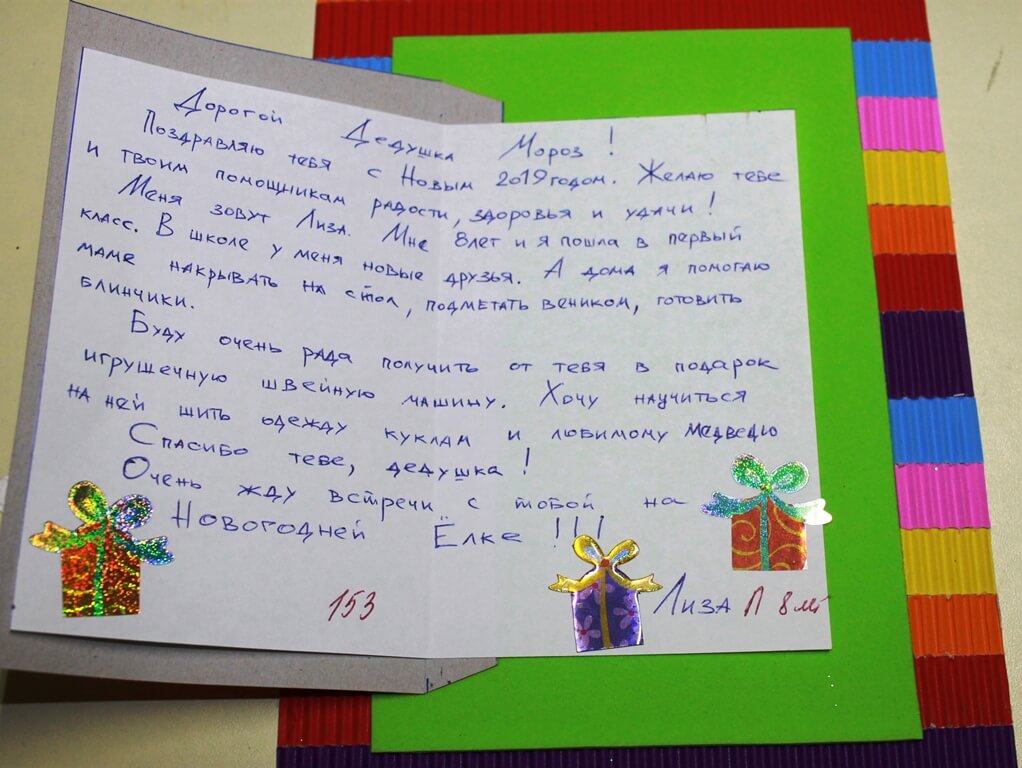 Дорогой Дедушка Мороз !
Поздравляю тебя с Новым 2019 годом. Желаю тебе
и твоим помощникам радости, здоровья и удачи !
Меня зовут Лиза. Мне 8 лет и я пошла в первый
класс. В школе у меня новые друзья. А дома я помогаю
маме накрывать на стол, подметать веником, готовить
блинчики.
Буду очень рада получить от тебя в подарок
игрушечную швейную машину. Хочу научиться
на ней шить одежду куклам и любимому медведю
Спасибо тебе, дедушка !
Очень жду встречи с тобой на
Новогодней Ёлке !!!
153
Лиза П 8 лет